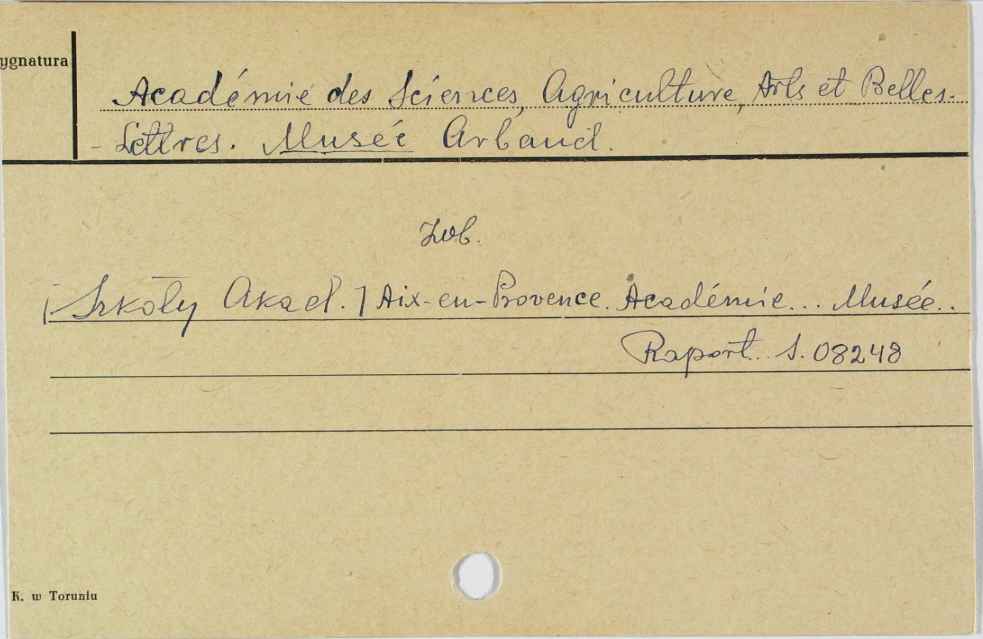 ygnatura
Académie des Sciences, Agriculture, Arts et Belles-
- Lettres. Musée Arbaud.
Zob.
[Szkoły Akad.] Aix-en-Provence. Académie... Musée..
Raport.. S. 08248
K. w Toruniu